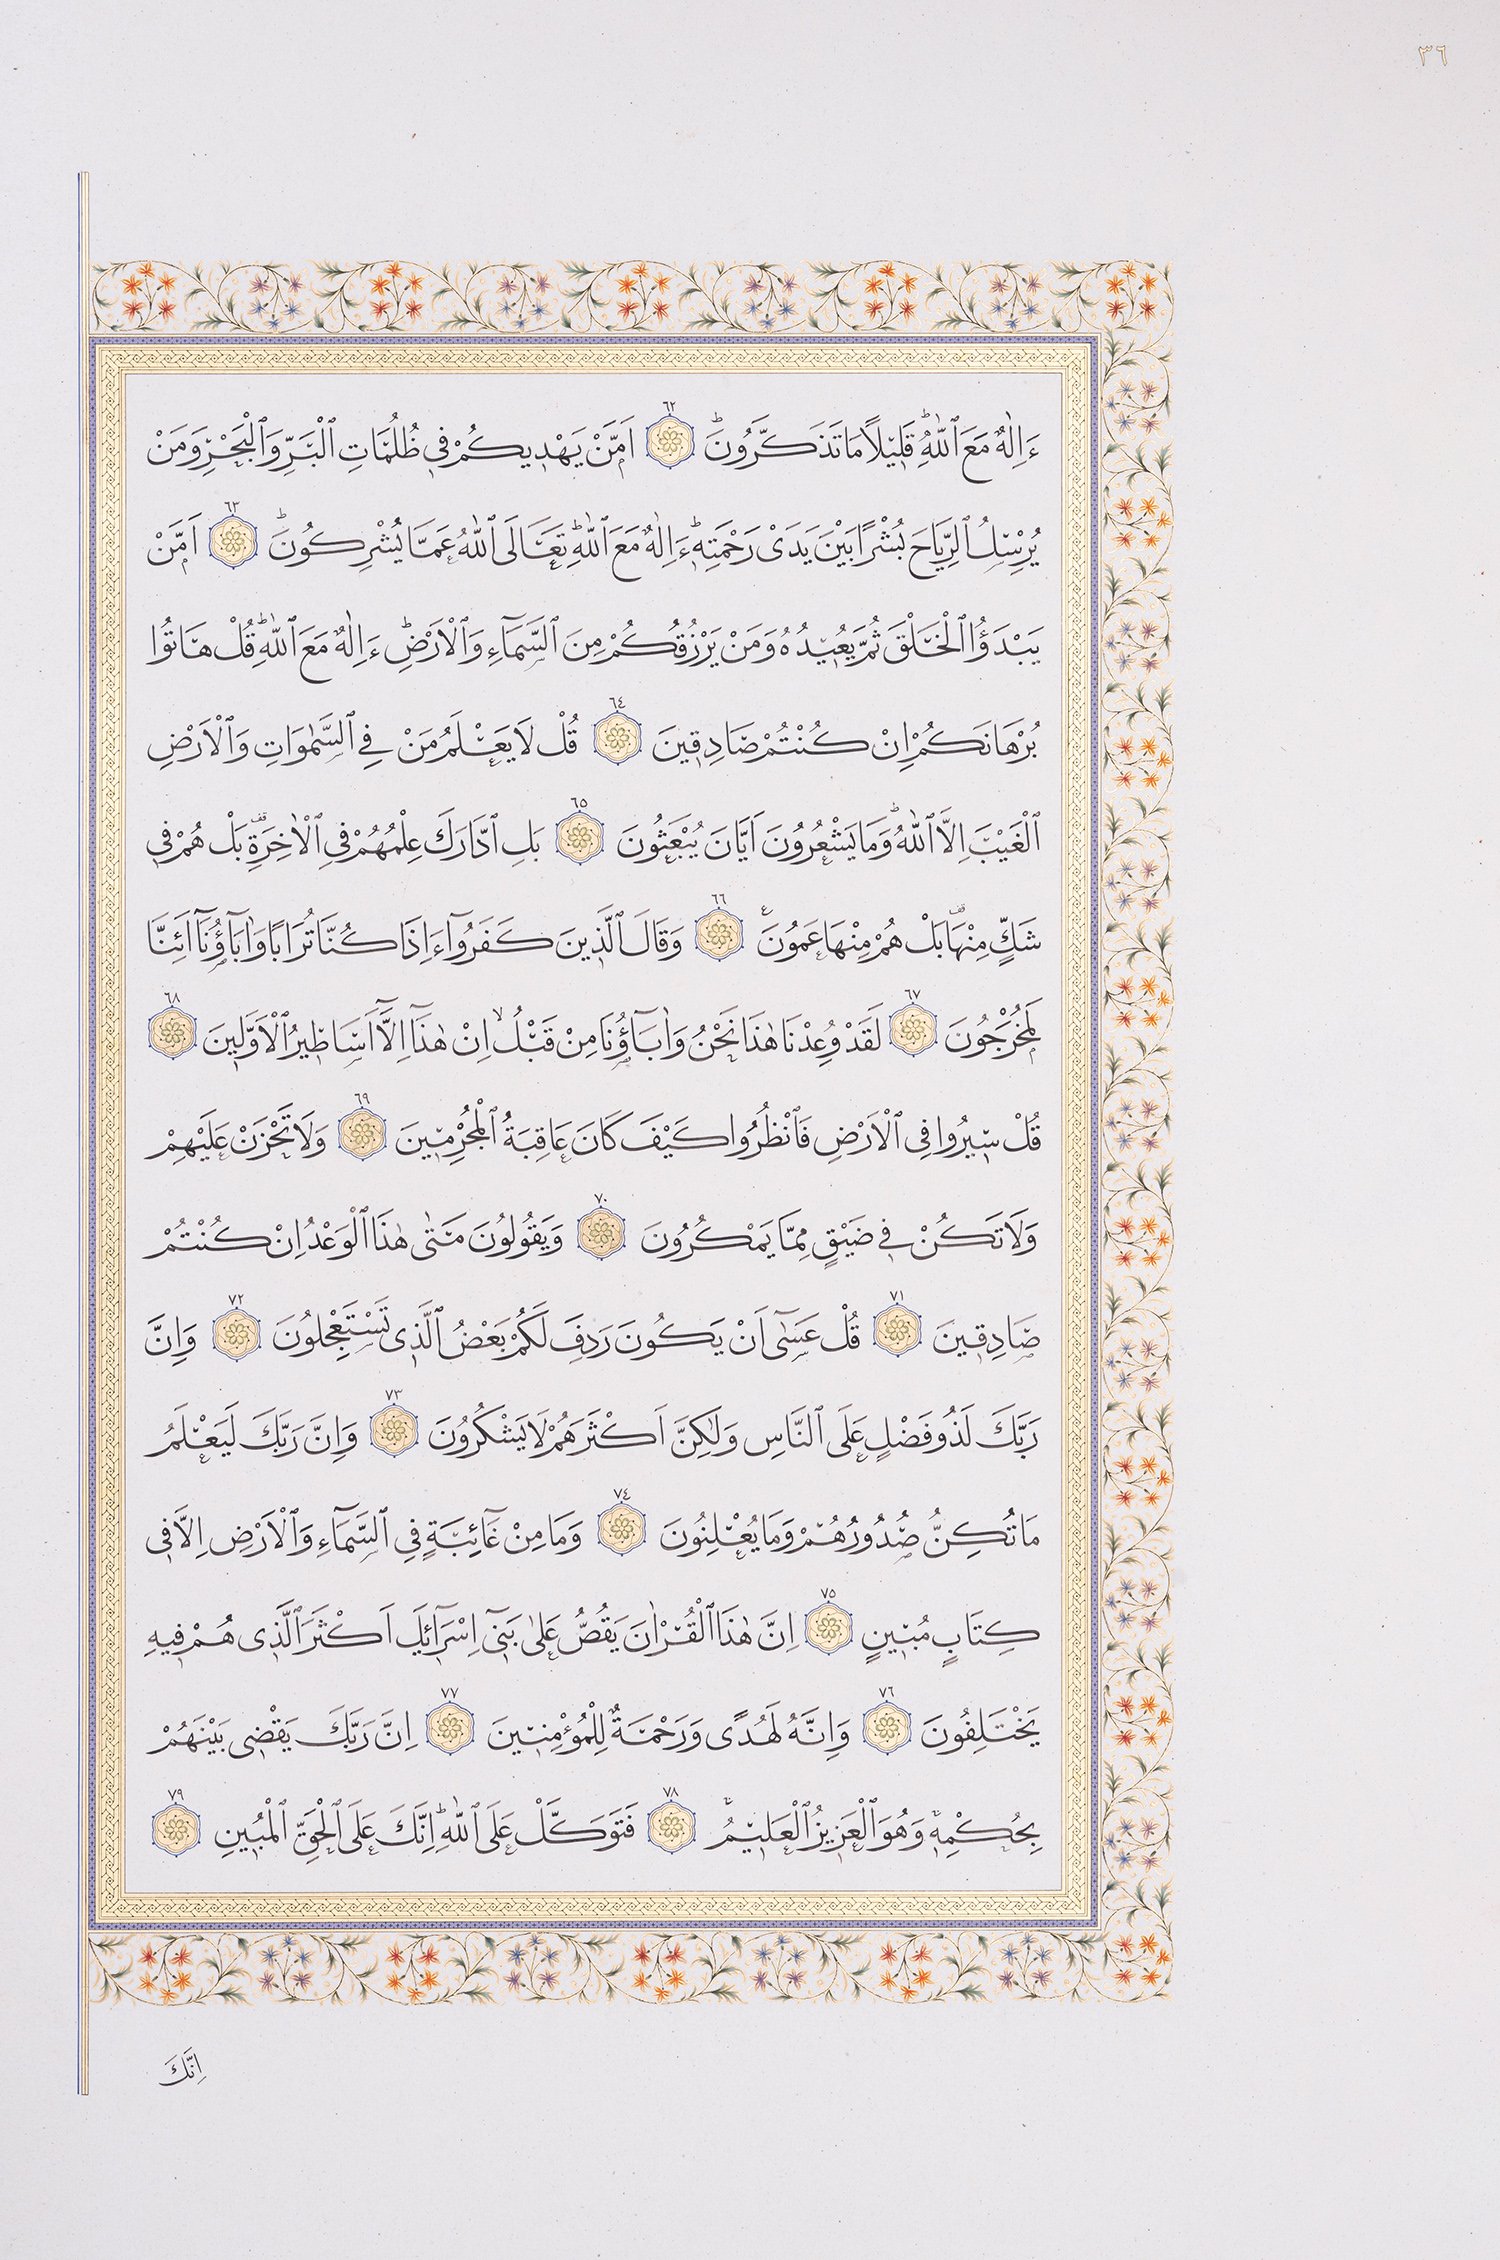 ٣٦
ءَاِلٰهٌ مَعَ ٱللّٰهِؕ قَلٖيلًا مَا تَذَكَّرُونَؕ ٦٢ اَمَّنْ يَهْدٖيكُمْ فٖي ظُلُمَاتِ ٱلْبَرِّ وَٱلْبَحْرِ وَمَنْ
يُرْسِلُ ٱلرِّيَاحَ بُشْرًا بَيْنَ يَدَىْ رَحْمَتِهٖؕ ءَاِلٰهٌ مَعَ ٱللّٰهِؕ تَعَالَى ٱللّٰهُ عَمَّا يُشْرِكُونَؕ ٦٣ اَمَّنْ
يَبْدَؤُا ٱلْخَلْقَ ثُمَّ يُعٖيدُهُ وَمَنْ يَرْزُقُكُمْ مِنَ ٱلسَّمَآءِ وَٱلْاَرْضِؕ ءَاِلٰهٌ مَعَ ٱللّٰهِؕ قُلْ هَاتُوا
بُرْهَانَكُمْ اِنْ كُنْتُمْ صَادِقٖينَ ٦٤ قُلْ لَا يَعْلَمُ مَنْ فِي ٱلسَّمٰوَاتِ وَٱلْاَرْضِ
ٱلْغَيْبَ اِلَّا ٱللّٰهُؕ وَمَا يَشْعُرُونَ اَيَّانَ يُبْعَثُونَ ٦٥ بَلِ ٱدَّارَكَ عِلْمُهُمْ فِي ٱلْاٰخِرَةِࣞ بَلْ هُمْ فٖي
شَكٍّ مِنْهَاࣞ بَلْ هُمْ مِنْهَا عَمُونَࣖ ٦٦ وَقَالَ ٱلَّذٖينَ كَفَرُوٓا ءَاِذَا كُنَّا تُرَابًا وَاٰبَآؤُنَآ اَئِنَّا
لَمُخْرَجُونَ ٦٧ لَقَدْ وُعِدْنَا هٰذَا نَحْنُ وَاٰبَآؤُنَا مِنْ قَبْلُۙ اِنْ هٰذَآ اِلَّٓا اَسَاطٖيرُ ٱلْاَوَّلٖينَ ٦٨
قُلْ سٖيرُوا فِي ٱلْاَرْضِ فَٱنْظُرُوا كَيْفَ كَانَ عَاقِبَةُ ٱلْمُجْرِمٖينَ ٦٩ وَلَا تَحْزَنْ عَلَيْهِمْ
وَلَا تَكُنْ فٖي ضَيْقٍ مِمَّا يَمْكُرُونَ ٧٠ وَيَقُولُونَ مَتٰى هٰذَا ٱلْوَعْدُ اِنْ كُنْتُمْ
صَادِقٖينَ ٧١ قُلْ عَسٰٓى اَنْ يَكُونَ رَدِفَ لَكُمْ بَعْضُ ٱلَّذٖى تَسْتَعْجِلُونَ ٧٢ وَاِنَّ
رَبَّكَ لَذُو فَضْلٍ عَلَى ٱلنَّاسِ وَلٰكِنَّ اَكْثَرَهُمْ لَا يَشْكُرُونَ ٧٣ وَاِنَّ رَبَّكَ لَيَعْلَمُ
مَا تُكِنُّ صُدُورُهُمْ وَمَا يُعْلِنُونَ ٧٤ وَمَا مِنْ غَآئِبَةٍ فِي ٱلسَّمَآءِ وَٱلْاَرْضِ اِلَّا فٖي
كِتَابٍ مُبٖينٍ ٧٥ اِنَّ هٰذَا ٱلْقُرْاٰنَ يَقُصُّ عَلٰى بَنٖٓى اِسْرَآئٖلَ اَكْثَرَ ٱلَّذٖى هُمْ فٖيهِ
يَخْتَلِفُونَ ٧٦ وَاِنَّهُ لَهُدًى وَرَحْمَةٌ لِلْمُؤْمِنٖينَ ٧٧ اِنَّ رَبَّكَ يَقْضٖى بَيْنَهُمْ
بِحُكْمِهٖۚ وَهُوَ ٱلْعَزٖيزُ ٱلْعَلٖيمُۚ ٧٨ فَتَوَكَّلْ عَلَى ٱللّٰهِؕ اِنَّكَ عَلَى ٱلْحَقِّ ٱلْمُبٖينِ ٧٩
اِنَّكَ